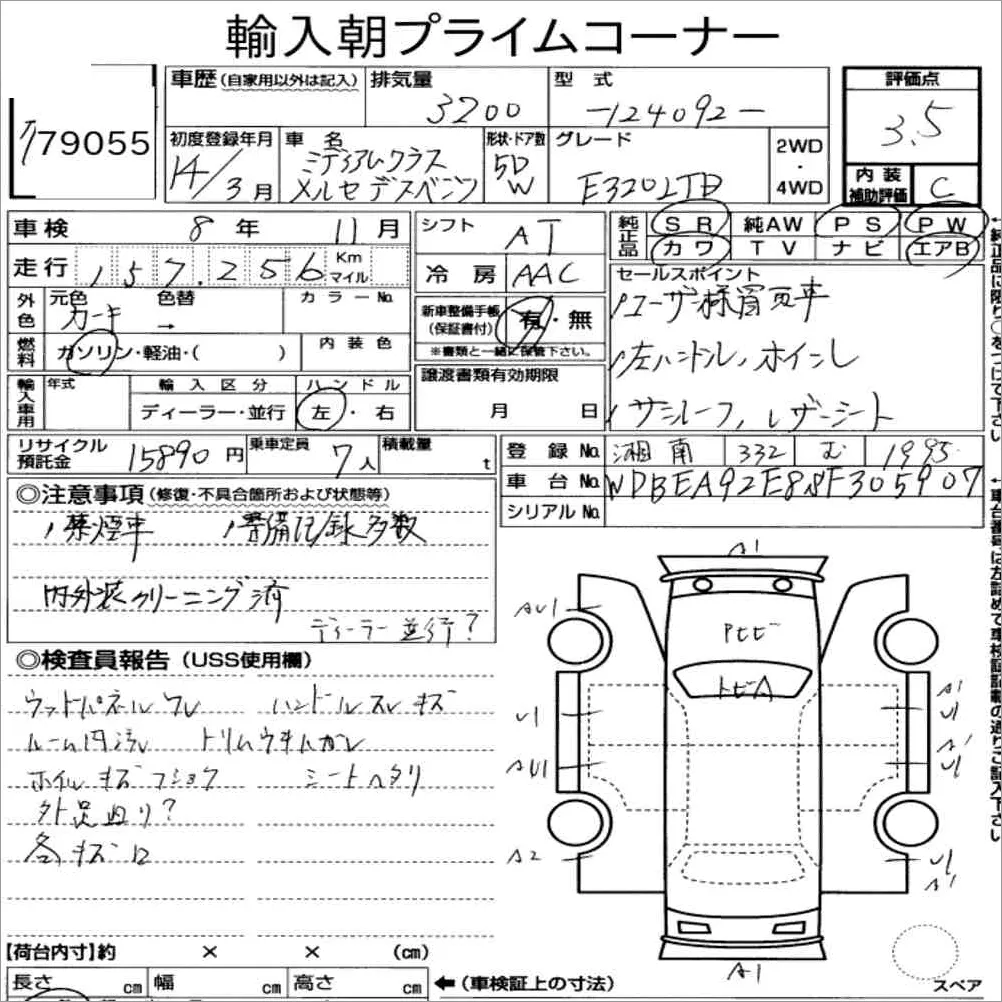 輸入朝プライムコーナー
車歴(自家用以外は記入) 排気量 3200 型式 -124092- 評価点 3.5
79055
初度登録年月 14/3月 車名 ミディアムクラス メルセデスベンツ 形状・ドア数 5D W グレード E320LTD 2WD・4WD 内装補助評価 C
車検 8年 11月 シフト AT 純正品 SR 純AW PS PW
カワ TV ナビ エアB
走行 157,256 Km マイル 冷房 AAC
外色 元色 カーキ 色替 → カラーNo.
新車整備手帳(保証書付) 有・無
※書類と一緒に保管下さい。
セールスポイント
ユーザー様買取車
左ハンドル,ホイール
サンルーフ,レザーシート
燃料 ガソリン・軽油・( ) 内装色
譲渡書類有効期限 月 日
輸入車用 年式 輸入区分 ディーラー・並行 ハンドル 左・右
リサイクル預託金 15890円 乗車定員 7人 積載量 t
登録No. 湘南 332 む 1995
車台No. WDBEA92E8SF305907
シリアルNo.
◎注意事項(修復・不具合箇所および状態等)
禁煙車 整備記録多数
内外装クリーニング済
ディーラー並行?
◎検査員報告(USS使用欄)
ウッドパネルワレ ハンドルスレキズ
ルーム内汚レ トリムウキハガレ
ホイルキズフショク シートヘタリ
外足廻り?
各キズロ
A1
AU1
Pヒビ
トビA
U1
A1
U1
AU1
A1
U1
A2
U1
A1
A1
スペア
【荷台内寸】約 × × (cm)
長さ cm 幅 cm 高さ cm ←(車検証上の寸法)
←純正品に限り○をつけて下さい
←車台番号は左詰めで車検証記載の通りご記入下さい